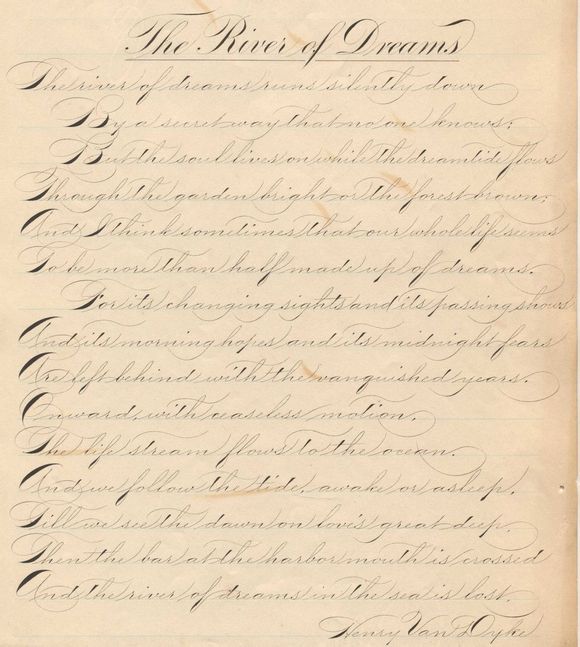 The River of Dreams
The river of dreams runs silently down
By a secret way that no one knows;
But the soul lives on while the dreamtide flows
Through the garden bright or the forest brown;
And I think sometimes that our whole life seems
To be more than half made up of dreams.
For its changing sights and its passing shows
And its morning hopes and its midnight fears
Are left behind with the vanquished years.
Onward, with ceaseless motion,
The life stream flows to the ocean.
And we follow the tide, awake or asleep,
Till we see the dawn on love's great deep,
Then the bar at the harbor mouth is crossed
And the river of dreams in the sea is lost.
Henry Van Dyke